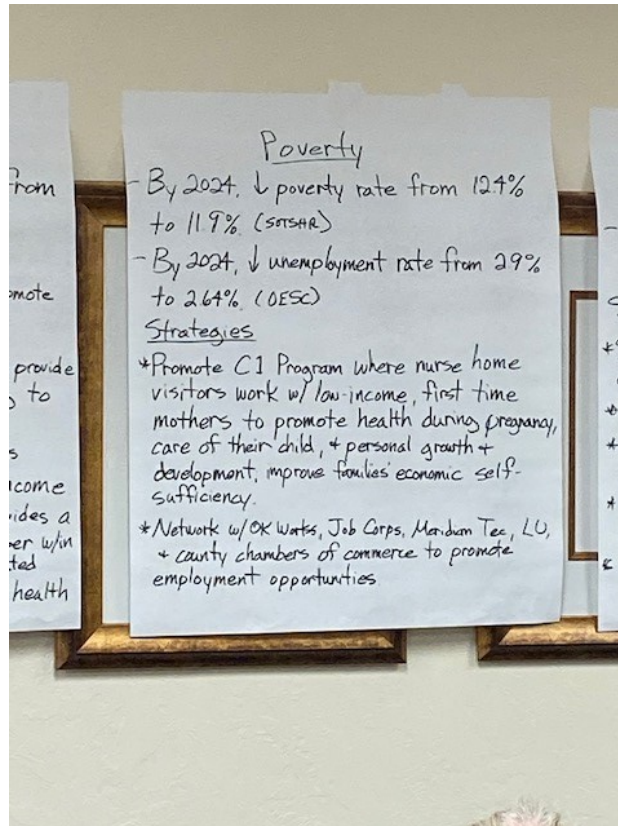 Poverty
- By 2024, ↓ poverty rate from 12.4%
to 11.9%. (SOTSHR)
- By 2024, ↓ unemployment rate from 2.9%
to 2.64%. (OESC)
Strategies
*Promote C1 Program where nurse home
visitors work w/ low-income, first time
mothers to promote health during pregnancy,
care of their child, + personal growth +
development, improve families' economic self-
sufficiency.
*Network w/ OK Works, Job Corps, Meridian Tec, LU,
+ county chambers of commerce to promote
employment opportunities
from
provide
to
come
ides a
er w/in
ted
health